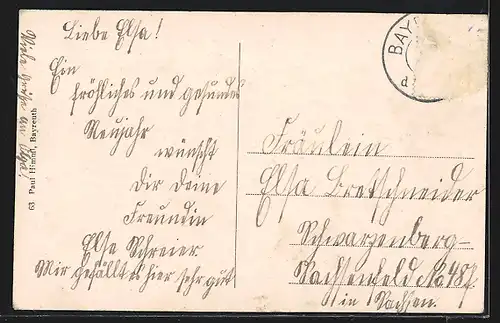 Liebe Elsa!
Ein
fröhliches und gesundes
Neujahr
wünscht
Dir Deine
Freundin
Else Schreier
Mir gefällt es hier sehr gut
Viele Grüße an Olga!
63 Paul Himml, Bayreuth
BAY
d
Fräulein
Elsa Bretschneider
Schwarzenberg-
Sachsenfeld No 48f.
in Sachsen.